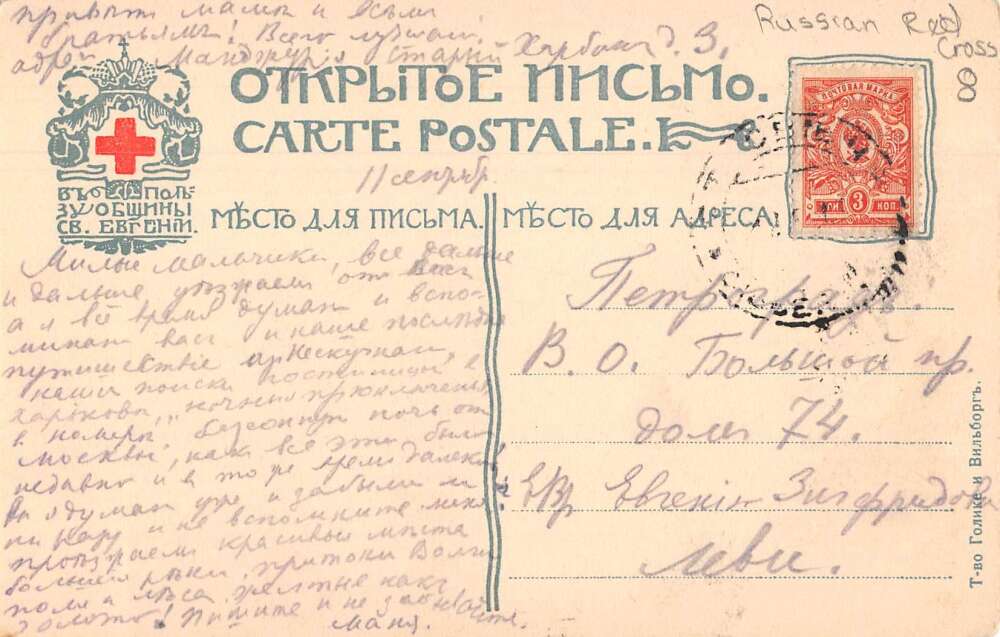 привѣтъ мамѣ и всѣмъ
братьямъ! Всего лучшаго
адрес Манджурія Старый Харбинъ д. 3.
Russian Red
Cross
8
ОТКРЫТОЕ ПИСЬМО.
CARTE POSTALE.
ПОЧТОВАЯ МАРКА
ТРИ 3 КОП
ВЪ ПОЛЬ-
ЗУ ОБЩИНЫ
СВ. ЕВГЕНІИ.
11 сентябр
МѢСТО ДЛЯ ПИСЬМА.
МѢСТО ДЛЯ АДРЕСА.
Милые мальчики, все дальше
и дальше уѣзжаем от Васъ
а я всё время думаю и вспо-
минаю васъ и наше последн
путешествіе
наши поиски гостиницы в
Харьковѣ, "ночныя приключенья
в номерѣ, безсонную ночь от
Москвы, какъ всё это было
недавно и в то же время далеко!
Вы я думаю уже и забыли
и не вспомните меня
проѣзжаем красивыя мѣста
большія рѣки, притоки Волги
поля и лѣса желтые какъ
золото! Пишите и не забывайте.
Маня.
Петроградъ.
В. О. Большой пр.
домъ 74.
ЕВр Евгенію Зигфридов
Леви.
Т-во Голике и Вильборгъ.